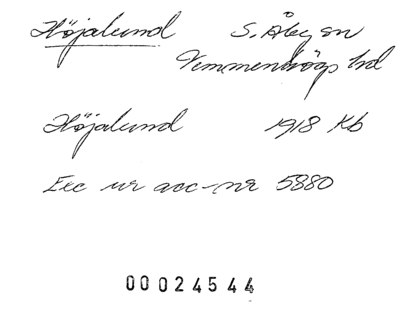 Höjalund S. Åby sn
Vemmenhögs hd
Höjalund 1918 Kb
Exc ur acc-nr 5880
00024544